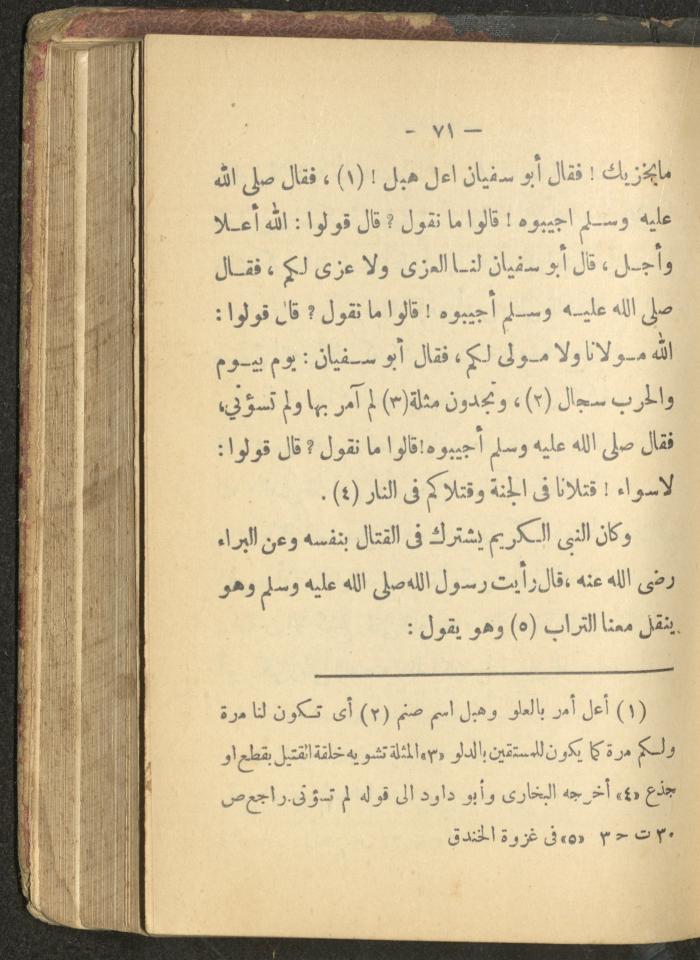 — ٧١ -
مايخزيك ! فقال أبو سفيان اعل هبل ! (١) ، فقال صلى الله
عليه وسلم اجيبوه ! قالوا ما نقول ? قال قولوا : الله أعلا
وأجل ، قال أبو سفيان لنا العزى ولا عزى لكم ، فقال
صلى الله عليه وسلم أجيبوه ! قالوا ما نقول ? قال قولوا :
الله مولانا ولا مولى لكم ، فقال أبو سفيان : يوم بيوم
والحرب سجال (٢) ، وتجدون مثلة (٣) لم آمر بها ولم تسؤني،
فقال صلى الله عليه وسلم أجيبوه! قالوا ما نقول ? قال قولوا :
لاسواء ! قتلانا فى الجنة وقتلاكم فى النار (٤) .
وكان النبي الكريم يشترك فى القتال بنفسه وعن البراء
رضى الله عنه ،قال رأيت رسول الله صلى الله عليه وسلم وهو
ينقل معنا التراب (٥) وهو يقول :
(١) أعل أمر بالعلو وهبل اسم صنم (٢) أى تكون لنا مرة
ولكم مرة كما يكون للمستقين بالدلو «٣» المثلة تشويه خلقة القتيل بقطع او
جذع «٤» أخرجه البخارى وأبو داود الى قوله لم تسؤنى. راجع ص
٣٠ ت ح ٣ «٥» فى غزوة الخندق